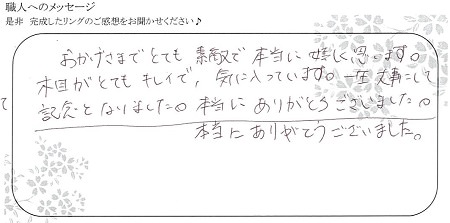 職人へのメッセージ
是非 完成したリングのご感想をお聞かせください♪
おかげさまでとても 素敵で 本当に 嬉しく思います。
木目がとてもキレイで、気に入っています。一生大事にして
記念となりました。本当に ありがとうございました。
本当に ありがとうございました。
て